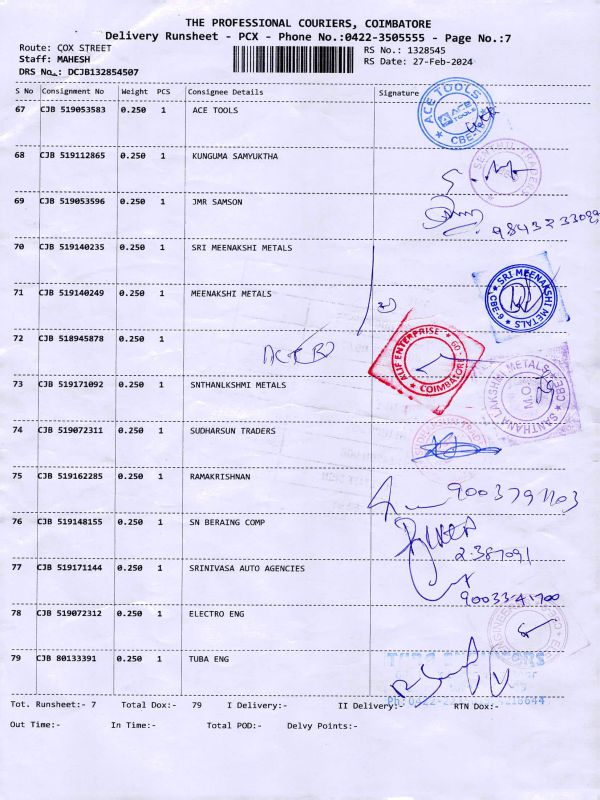 THE PROFESSIONAL COURIERS, COIMBATORE
Delivery Runsheet - PCX - Phone No.:0422-3505555 - Page No.:7
Route: COX STREET
RS No.: 1328545
Staff: MAHESH
RS Date: 27-Feb-2024
DRS No.: DCJB132854507
S No Consignment No Weight PCS Consignee Details Signature
67 CJB 519053583 0.250 1 ACE TOOLS
ACE TOOLS ACE TOOLS
68 CJB 519112865 0.250 1 KUNGUMA SAMYUKTHA
69 CJB 519053596 0.250 1 JMR SAMSON
70 CJB 519140235 0.250 1 SRI MEENAKSHI METALS
71 CJB 519140249 0.250 1 MEENAKSHI METALS
SRI MEENAKSHI METALS CBE-9
72 CJB 518945878 0.250 1
ALIF ENTERPRISE COIMBATORE
73 CJB 519171092 0.250 1 SNTHANLKSHMI METALS
SANTHANA LAKSHMI METALS CBE
74 CJB 519072311 0.250 1 SUDHARSUN TRADERS
75 CJB 519162285 0.250 1 RAMAKRISHNAN
76 CJB 519148155 0.250 1 SN BERAING COMP
2387091
77 CJB 519171144 0.250 1 SRINIVASA AUTO AGENCIES
78 CJB 519072312 0.250 1 ELECTRO ENG
79 CJB 80133391 0.250 1 TUBA ENG
Tot. Runsheet:- 7 Total Dox:- 79 I Delivery:- II Delivery:- RTN Dox:-
Out Time:- In Time:- Total POD:- Delvy Points:-